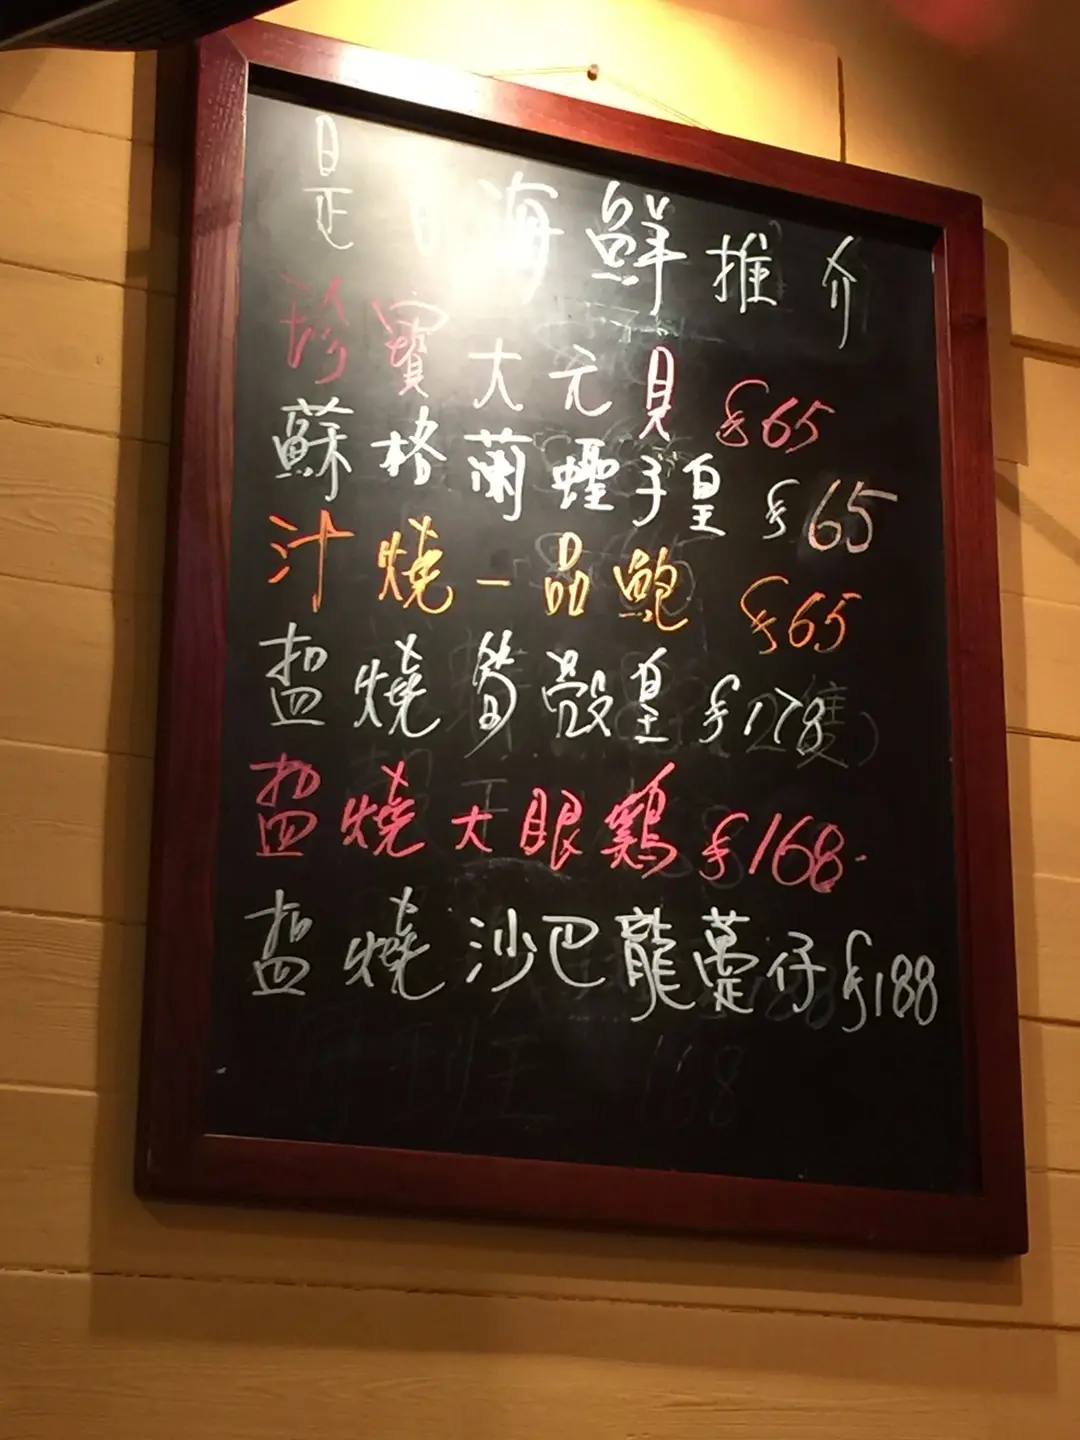 是日海鮮推介
珍寶大元貝 $65
蘇格蘭蟶子皇 $65
汁燒一品鮑 $65
盐燒筍殼皇 $178
盐燒大眼鷄 $168-
盐燒沙巴龍躉仔 $188